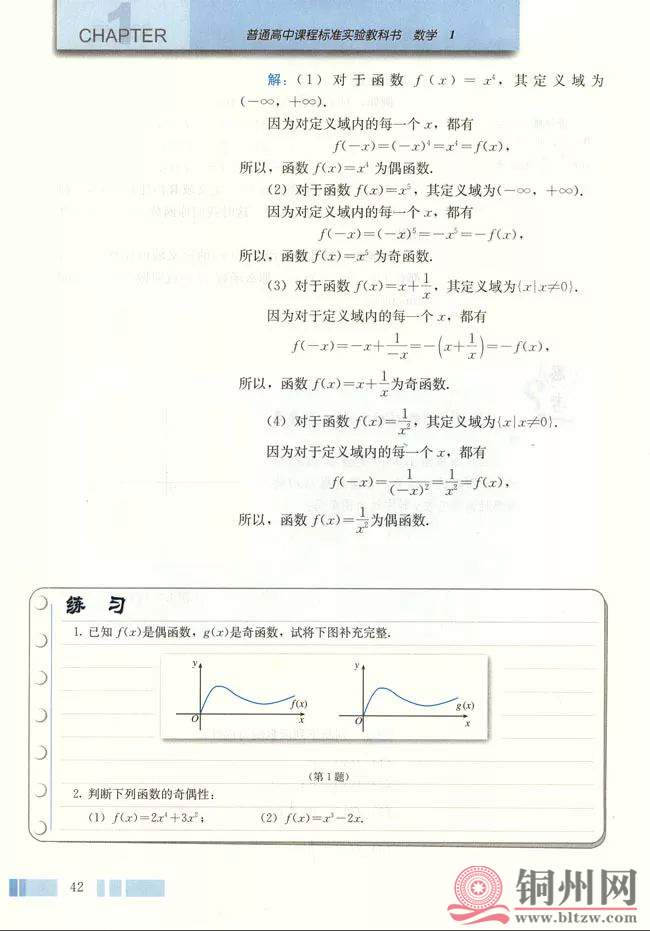 1
CHAPTER
普通高中课程标准实验教科书 数学 1
解:(1) 对于函数 f(x)=x⁴,其定义域为
(-∞,+∞).
因为对定义域内的每一个 x,都有
f(-x)=(-x)⁴=x⁴=f(x),
所以,函数 f(x)=x⁴ 为偶函数.
(2) 对于函数 f(x)=x⁵,其定义域为(-∞,+∞).
因为对定义域内的每一个 x,都有
f(-x)=(-x)⁵=-x⁵=-f(x),
所以,函数 f(x)=x⁵ 为奇函数.
(3) 对于函数 f(x)=x+1/x,其定义域为{x|x≠0}.
因为对于定义域内的每一个 x,都有
f(-x)=-x+1/(-x)=-(x+1/x)=-f(x),
所以,函数 f(x)=x+1/x为奇函数.
(4) 对于函数 f(x)=1/x²,其定义域为{x|x≠0}.
因为对于定义域内的每一个 x,都有
f(-x)=1/(-x)²=1/x²=f(x),
所以,函数 f(x)=1/x²为偶函数.
练 习
1. 已知 f(x)是偶函数,g(x)是奇函数,试将下图补充完整.
y
f(x)
O
x
y
g(x)
O
x
(第1题)
2. 判断下列函数的奇偶性:
(1) f(x)=2x⁴+3x²; (2) f(x)=x³-2x.
42
铜州网
www.bltzw.com